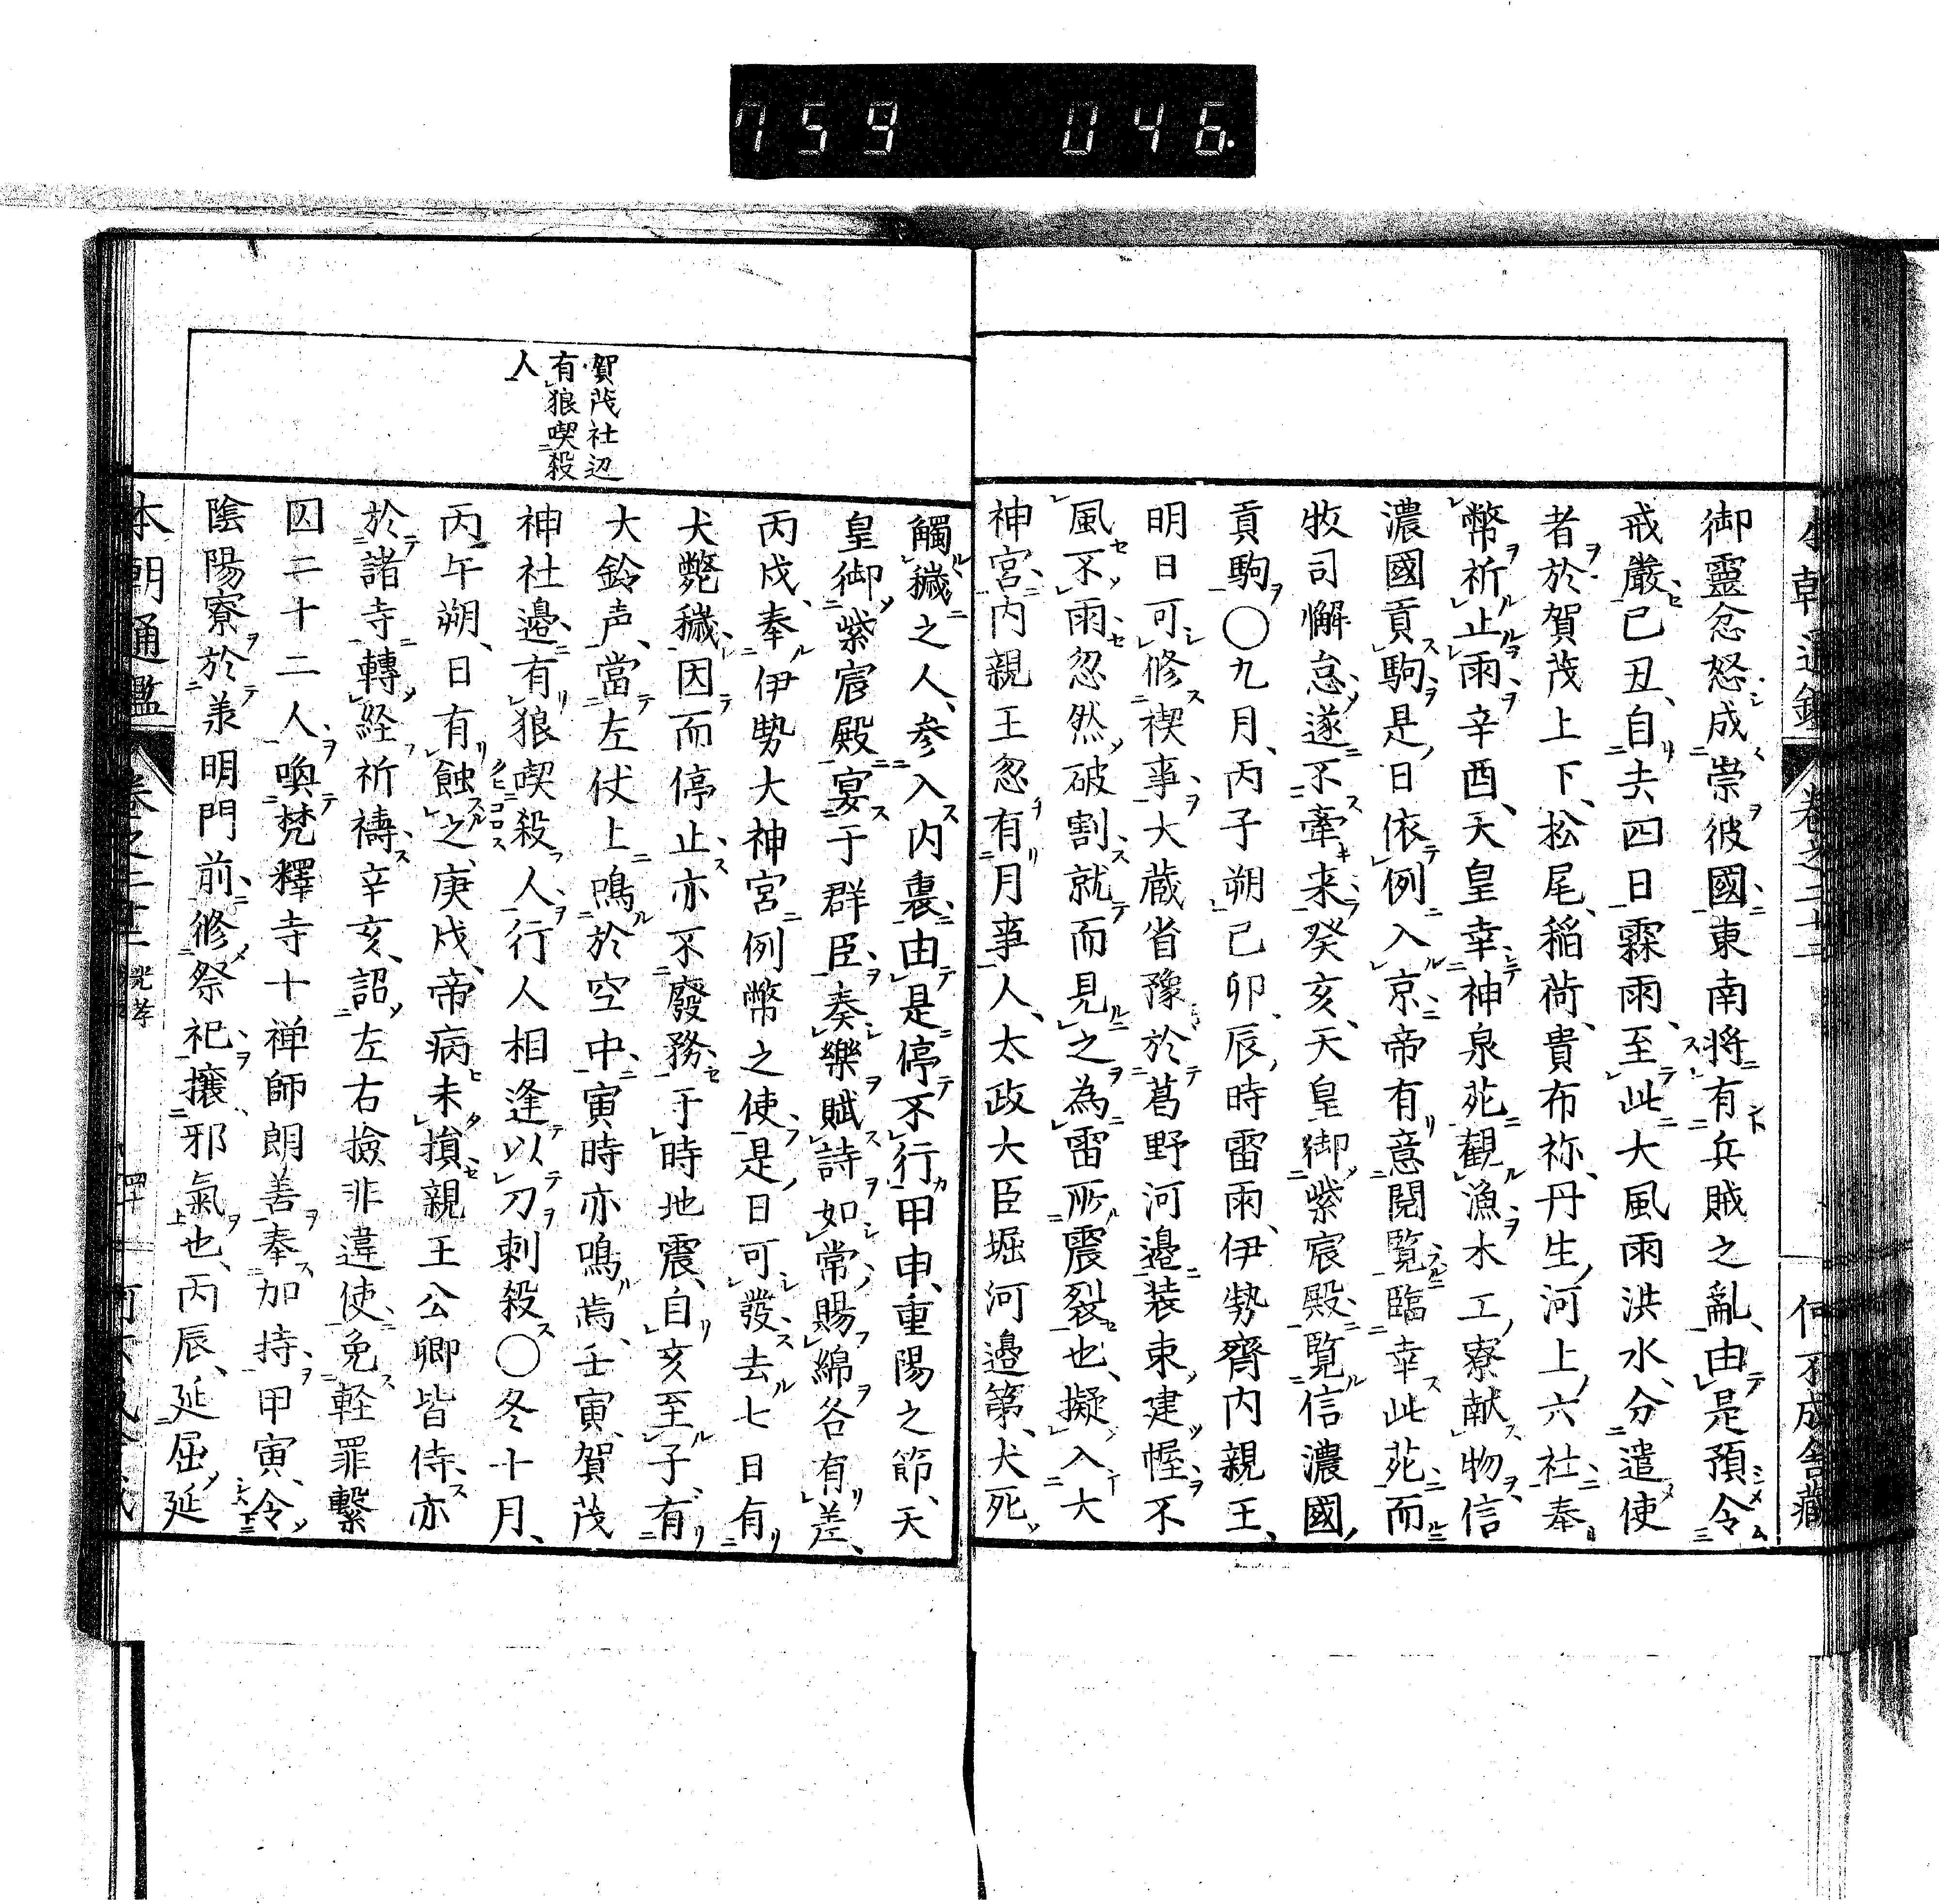 759 046.
本朝通鑑 卷之二十二 何不成舎藏
御靈忿怒成崇彼國東南將有兵賊之亂由是預令
戒嚴己丑、自去四日霖雨、至此大風雨洪水、分遣使
者於賀茂上下、松尾、稲荷、貴布祢、丹生、河上、六社奉
幣祈止雨辛酉、天皇幸神泉苑觀漁木工寮献物信
濃國貢駒是日依例入京帝有意閲覧臨幸此苑而
牧司懈怠遂不牽来癸亥、天皇御紫宸殿覧信濃國
貢駒〇九月、丙子朔己卯、辰時雷雨、伊勢齊内親王、
明日可修禊事大蔵省豫於葛野河邉装束建幄不
風不雨忽然破割就而見之為雷所震裂也、擬入大
神宮内親王忽有月事人、太政大臣堀河邉第、犬死
觸穢之人、参入内裏由是停不行甲申、重陽之節、天
皇御紫宸殿宴于群臣奏樂賦詩如常賜綿各有差、
丙戌、奉伊勢大神宮例幣之使是日可發去七日有
犬斃穢因而停止亦不發務于時地震、自亥至子、有
大鈴声、當左仗上鳴於空中寅時亦鳴焉、壬寅、賀茂
神社邉有狼喫殺人行人相逢以刀刺殺〇冬十月、
丙午朔、日有蝕之庚戌、帝病未損親王公卿皆侍亦
於諸寺轉経祈禱辛亥、詔左右撿非違使免軽罪繋
囚二十二人喚梵釋寺十禅師朗善奉加持甲寅、令
陰陽寮於羕明門前修祭祀攘邪氣也、丙辰、延屈延
賀茂社辺
有狼喫殺
人
本朝通鑑 卷之二十二 光孝 四十